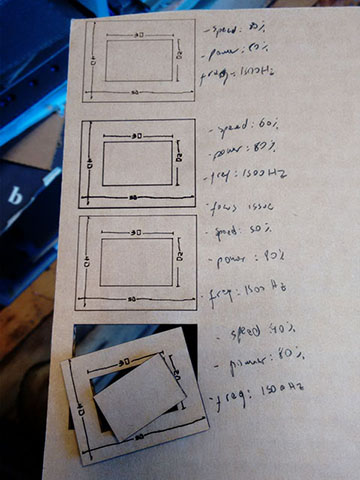 30
20
40
50
- speed: 80%
- power: 80%
- freq: 1500HZ
30
20
40
50
- speed: 60%
- power: 80%
- freq: 1500HZ
- focus issue
30
20
40
50
- speed: 50%
- power: 80%
- freq: 1500 HZ
30
20
40
50
- speed: 40%
- power: 80%
- freq: 1500HZ
b